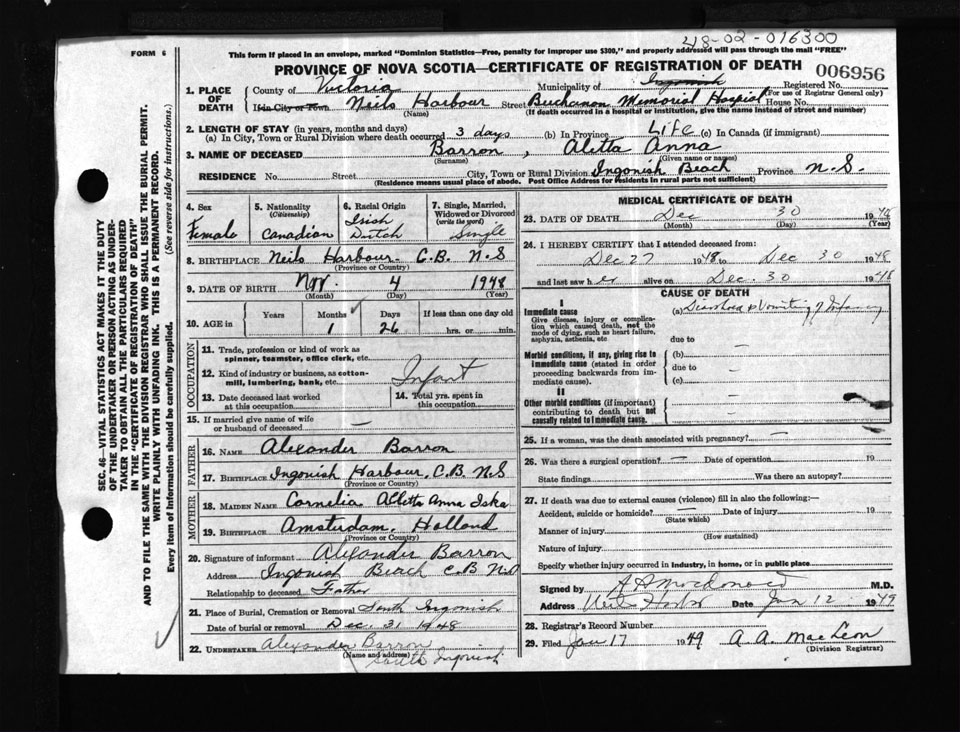 48-02-016300
FORM 6
This form if placed in an envelope, marked "Dominion Statistics—Free, penalty for improper use $300," and properly addressed will pass through the mail "FREE"
PROVINCE OF NOVA SCOTIA—CERTIFICATE OF REGISTRATION OF DEATH
006956
1. PLACE OF DEATH
County of Victoria Municipality of Ingonish Registered No.
(For use of Registrar General only)
In City or Town Neils Harbour Street Buchanan Memorial Hospital House No.
(Name) (If death occurred in a hospital or institution, give the name instead of street and number)
2. LENGTH OF STAY (in years, months and days)
(a) In City, Town or Rural Division where death occurred 3 days (b) In Province Life (c) In Canada (if immigrant)
3. NAME OF DECEASED Barron, Aletta Anna
(Surname) (Given name or names)
RESIDENCE No. Street City, Town or Rural Division Ingonish Beach Province N.S.
(Residence means usual place of abode. Post Office Address for Residents in rural parts not sufficient)
4. Sex Female
5. Nationality (Citizenship) Canadian
6. Racial Origin Irish Dutch
7. Single, Married, Widowed or Divorced (write the word) Single
8. BIRTHPLACE Neils Harbour C.B. N.S
(Province or Country)
9. DATE OF BIRTH Nov. 4 1948
(Month) (Day) (Year)
10. AGE in Years Months 1 Days 26 If less than one day old hrs. or min.
OCCUPATION
11. Trade, profession or kind of work as spinner, teamster, office clerk, etc.
12. Kind of industry or business, as cotton-mill, lumbering, bank, etc. Infant
13. Date deceased last worked at this occupation
14. Total yrs. spent in this occupation
15. If married give name of wife or husband of deceased —
FATHER
16. NAME Alexander Barron
17. BIRTHPLACE Ingonish Harbour, C.B. N.S
(Province or Country)
MOTHER
18. MAIDEN NAME Cornelia Aletta Anna Iska
19. BIRTHPLACE Amsterdam, Holland
(Province or Country)
20. Signature of informant Alexander Barron
Address Ingonish Beach C.B N.S
Relationship to deceased Father
21. Place of Burial, Cremation or Removal South Ingonish
Date of burial or removal Dec. 31 1948
22. UNDERTAKER Alexander Barron
(Name and address) South Ingonish
MEDICAL CERTIFICATE OF DEATH
23. DATE OF DEATH Dec 30 1948
(Month) (Day) (Year)
24. I HEREBY CERTIFY that I attended deceased from:
Dec 27 1948 to Dec 30 1948
and last saw her alive on Dec. 30 1948
CAUSE OF DEATH
I
Immediate cause (a) Diarrhoea & Vomiting of Infancy
Give disease, injury or complication which caused death, not the mode of dying, such as heart failure, asphyxia, asthenia, etc
due to
Morbid conditions, if any, giving rise to immediate cause (stated in order proceeding backwards from immediate cause).
(b) —
due to —
(c) —
II
Other morbid conditions (if important) contributing to death but not causally related to immediate cause. —
25. If a woman, was the death associated with pregnancy? —
26. Was there a surgical operation? — Date of operation 19
State findings Was there an autopsy?
27. If death was due to external causes (violence) fill in also the following:—
Accident, suicide or homicide? — Date of injury 19
(State which)
Manner of injury
(How sustained)
Nature of injury
Specify whether injury occurred in industry, in home, or in public place
Signed by A A Macdonald M.D.
Address Neils Harbor Date Jan 12 1949
28. Registrar's Record Number
29. Filed Jan 17 1949 A. A. MacLeon
(Division Registrar)
SEC. 46—VITAL STATISTICS ACT MAKES IT THE DUTY
OF THE UNDERTAKER OR PERSON ACTING AS UNDER-
TAKER TO OBTAIN ALL THE PARTICULARS REQUIRED
IN THE "CERTIFICATE OF REGISTRATION OF DEATH"
AND TO FILE THE SAME WITH THE DIVISION REGISTRAR WHO SHALL ISSUE THE BURIAL PERMIT.
WRITE PLAINLY WITH UNFADING INK. THIS IS A PERMANENT RECORD.
Every item of information should be carefully supplied. (See reverse side for instructions.)